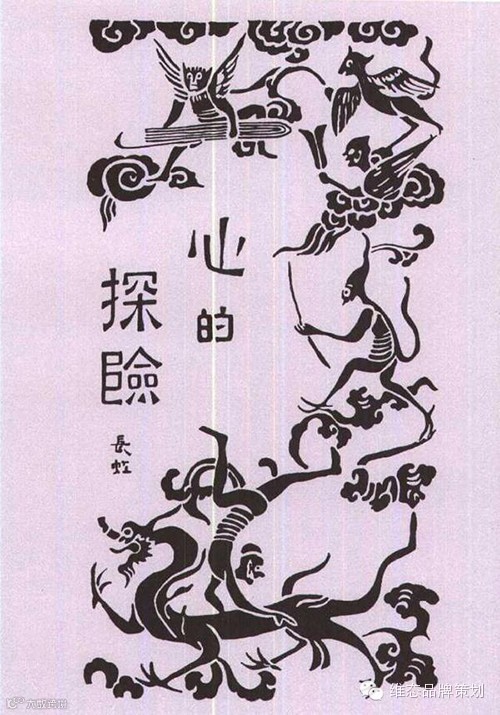 心的
探險
長虹
维态品牌策划